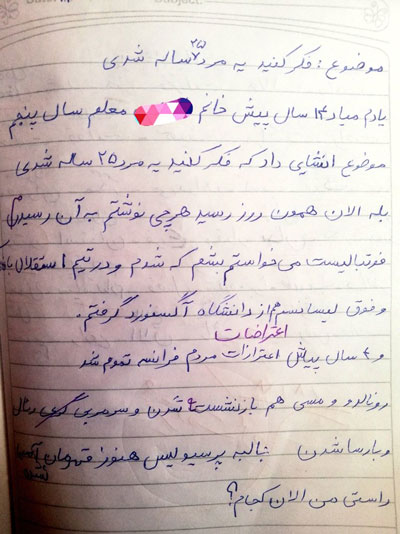 موضوع : فکر کنید یه مرد ۲۵ ساله شدی
یادم میاد ۱۴ سال پیش خانم معلم سال پنجم
موضوع انشایی داد که فکر کنید یه مرد ۲۵ ساله شدی
بله الان همون روز رسید هرچی نوشتم به آن رسیدم
فوتبالیست می‌خواستم بشم که شدم و در تیم استقلال
وفوق لیسانسم هم از دانشگاه آکسفورد گرفتم.
اعتراضات
و ۴ سال پیش اعتراضات مردم فرانسه تموم شد
رونالدو و مسی هم بازنشست شدن و سرمربی رئال
وبارسا شدن جالبه پرسپولیس هنوز قهرمان آسیا نشده
راستی من الان کجام؟